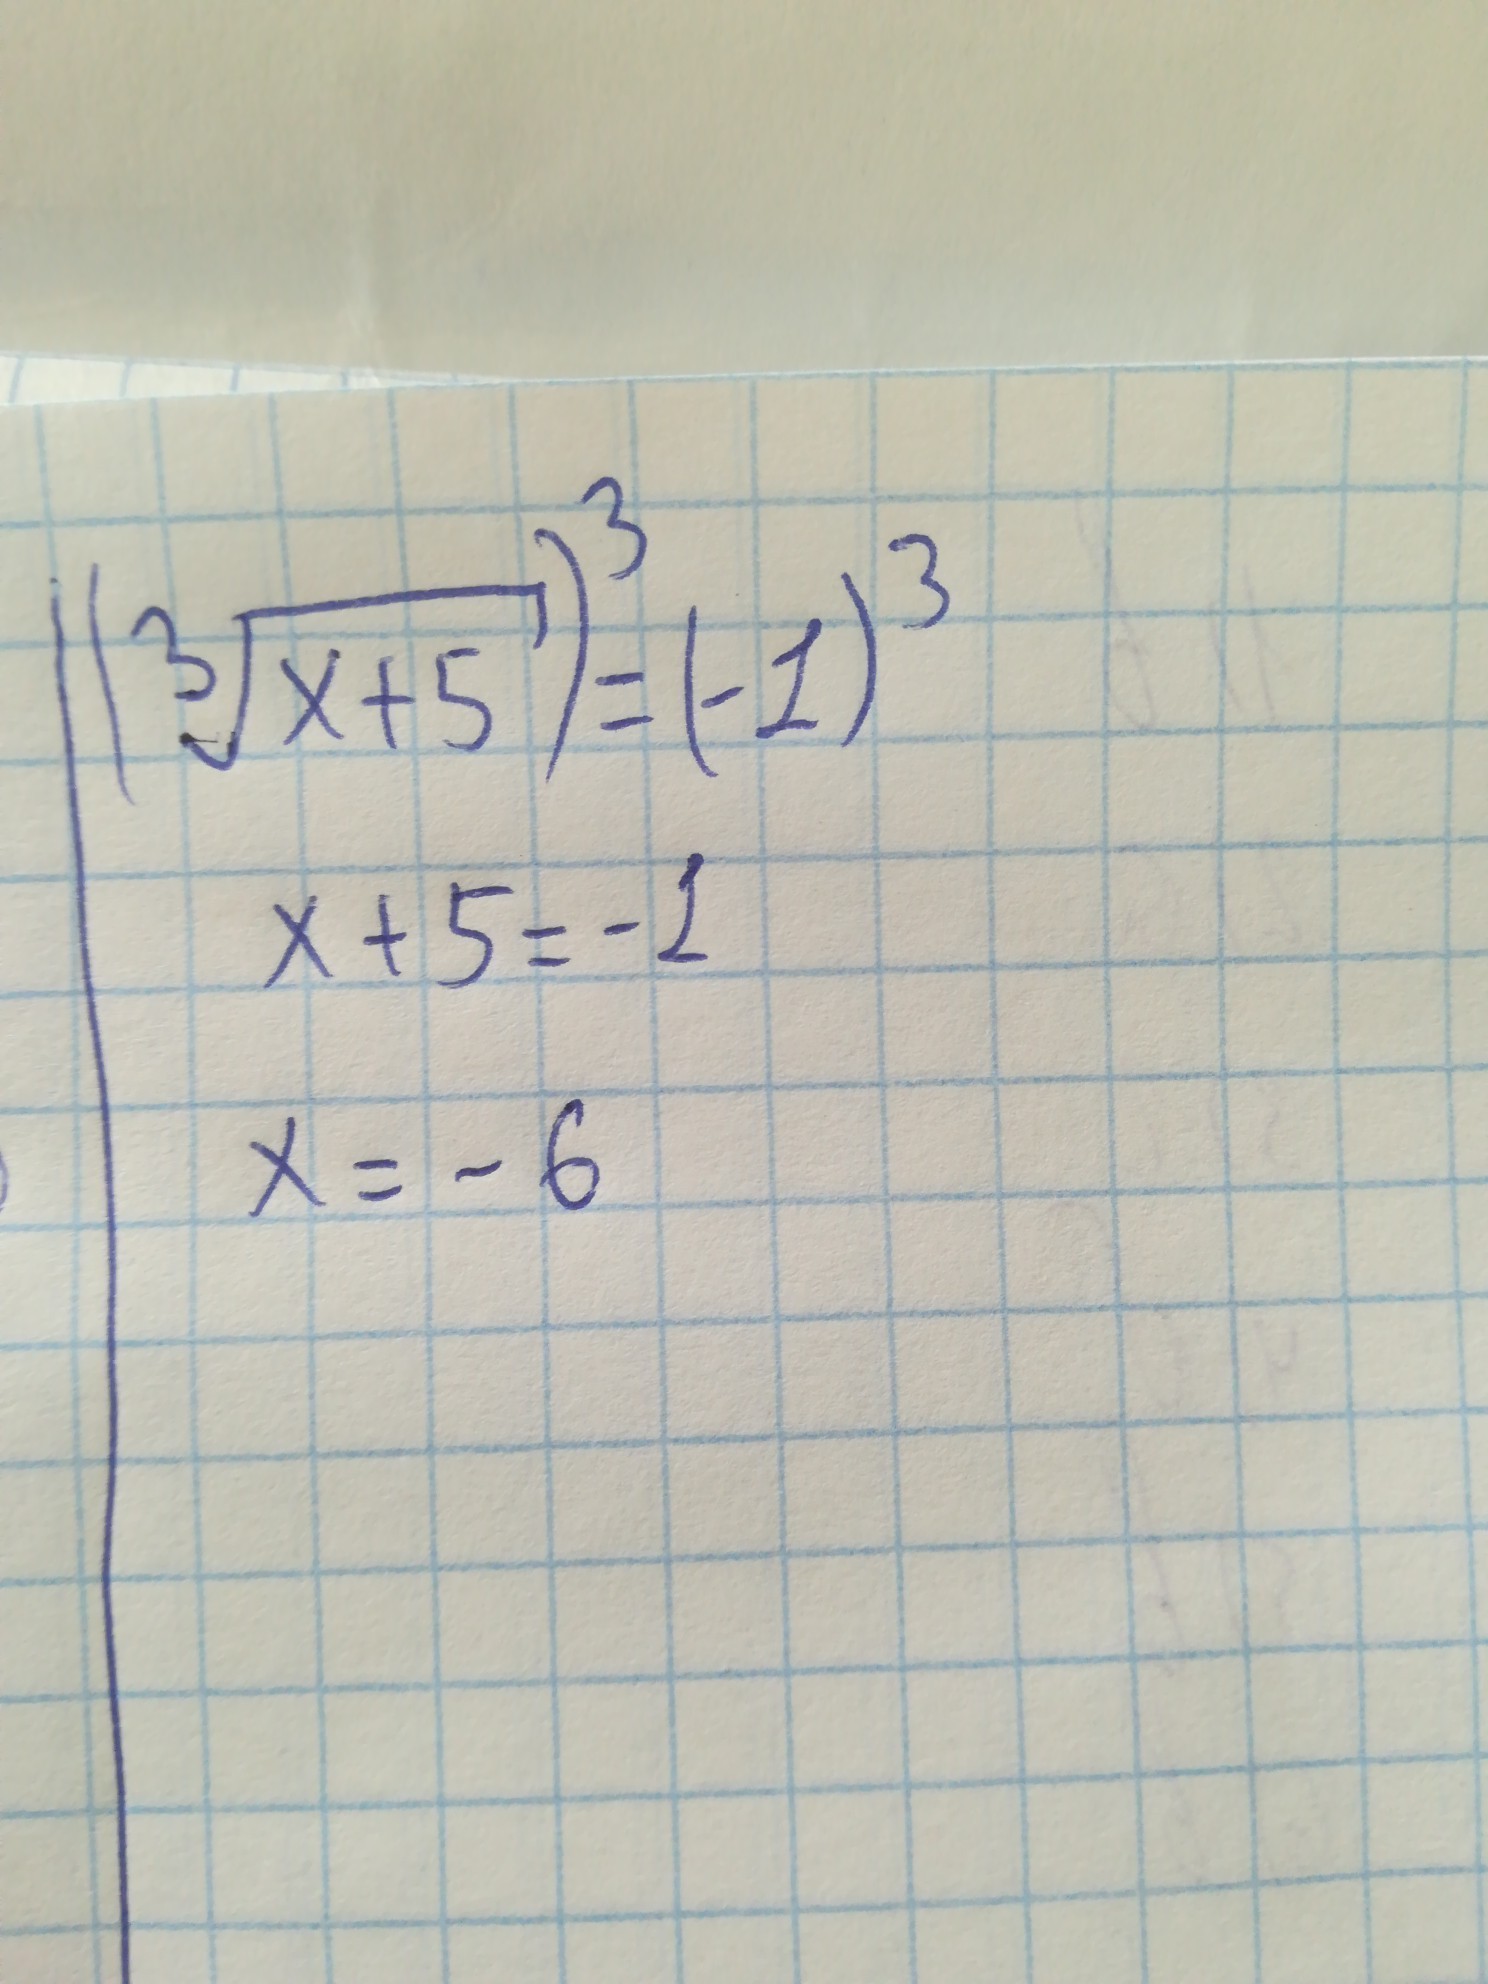 (∛(x+5))³=(-1)³
x+5=-1
x=-6